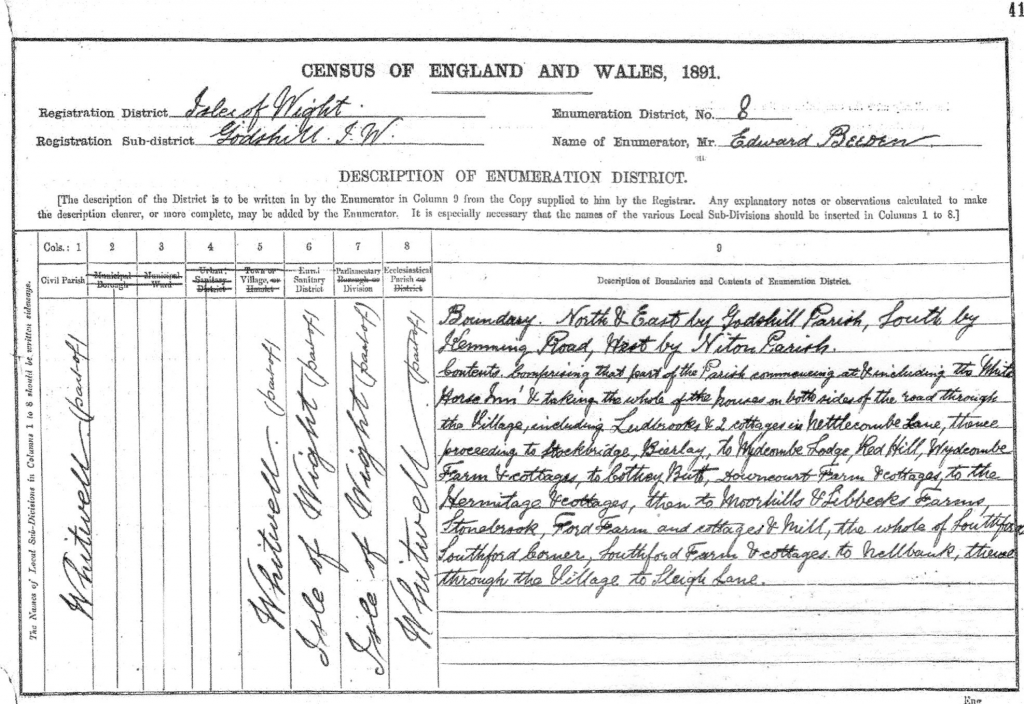 41
CENSUS OF ENGLAND AND WALES, 1891.
Registration District Isle of Wight.
Enumeration District, No. 8
Registration Sub-district Godshill. I.W.
Name of Enumerator, Mr. Edward Beeden
DESCRIPTION OF ENUMERATION DISTRICT.
[The description of the District is to be written in by the Enumerator in Column 9 from the Copy supplied to him by the Registrar. Any explanatory notes or observations calculated to make
the description clearer, or more complete, may be added by the Enumerator. It is especially necessary that the names of the various Local Sub-Divisions should be inserted in Columns 1 to 8.]
The Names of Local Sub-Divisions in Columns 1 to 8 should be written sideways.
Cols.: 1 2 3 4 5 6 7 8 9
Civil Parish
Municipal Borough
Municipal Ward
Urban Sanitary District
Town or Village, or Hamlet
Rural Sanitary District
Parliamentary Borough or Division
Ecclesiastical Parish or District
Description of Boundaries and Contents of Enumeration District.
Whitwell (part of)
Whitwell. (part of)
Isle of Wight (part of)
Isle of Wight (part of)
Whitwell. (part of)
Boundary. North & East by Godshill Parish, South by
Kemming Road, West by Niton Parish.
Contents. Comprising that part of the Parish commencing at & including the White
Horse Inn' & taking the whole of the houses on both sides of the road through
the Village, including Ludbrooks & 2 cottages in Nettlecombe Lane, thence
proceeding to Stockbridge, Bierlay, to Wydcombe Lodge, Red Hill, Wydcombe
Farm & cottages, to Butt, Downcourt Farm & cottages, to the
Hermitage & cottages, then to Moorhills & Sibbecks Farms,
Stonebrook, Ford Farm and cottages & Mill, the whole of Southford
Southford Corner, Southford Farm & cottages to Nellbank, thence
through the Village to Sleigh Lane.
Eng